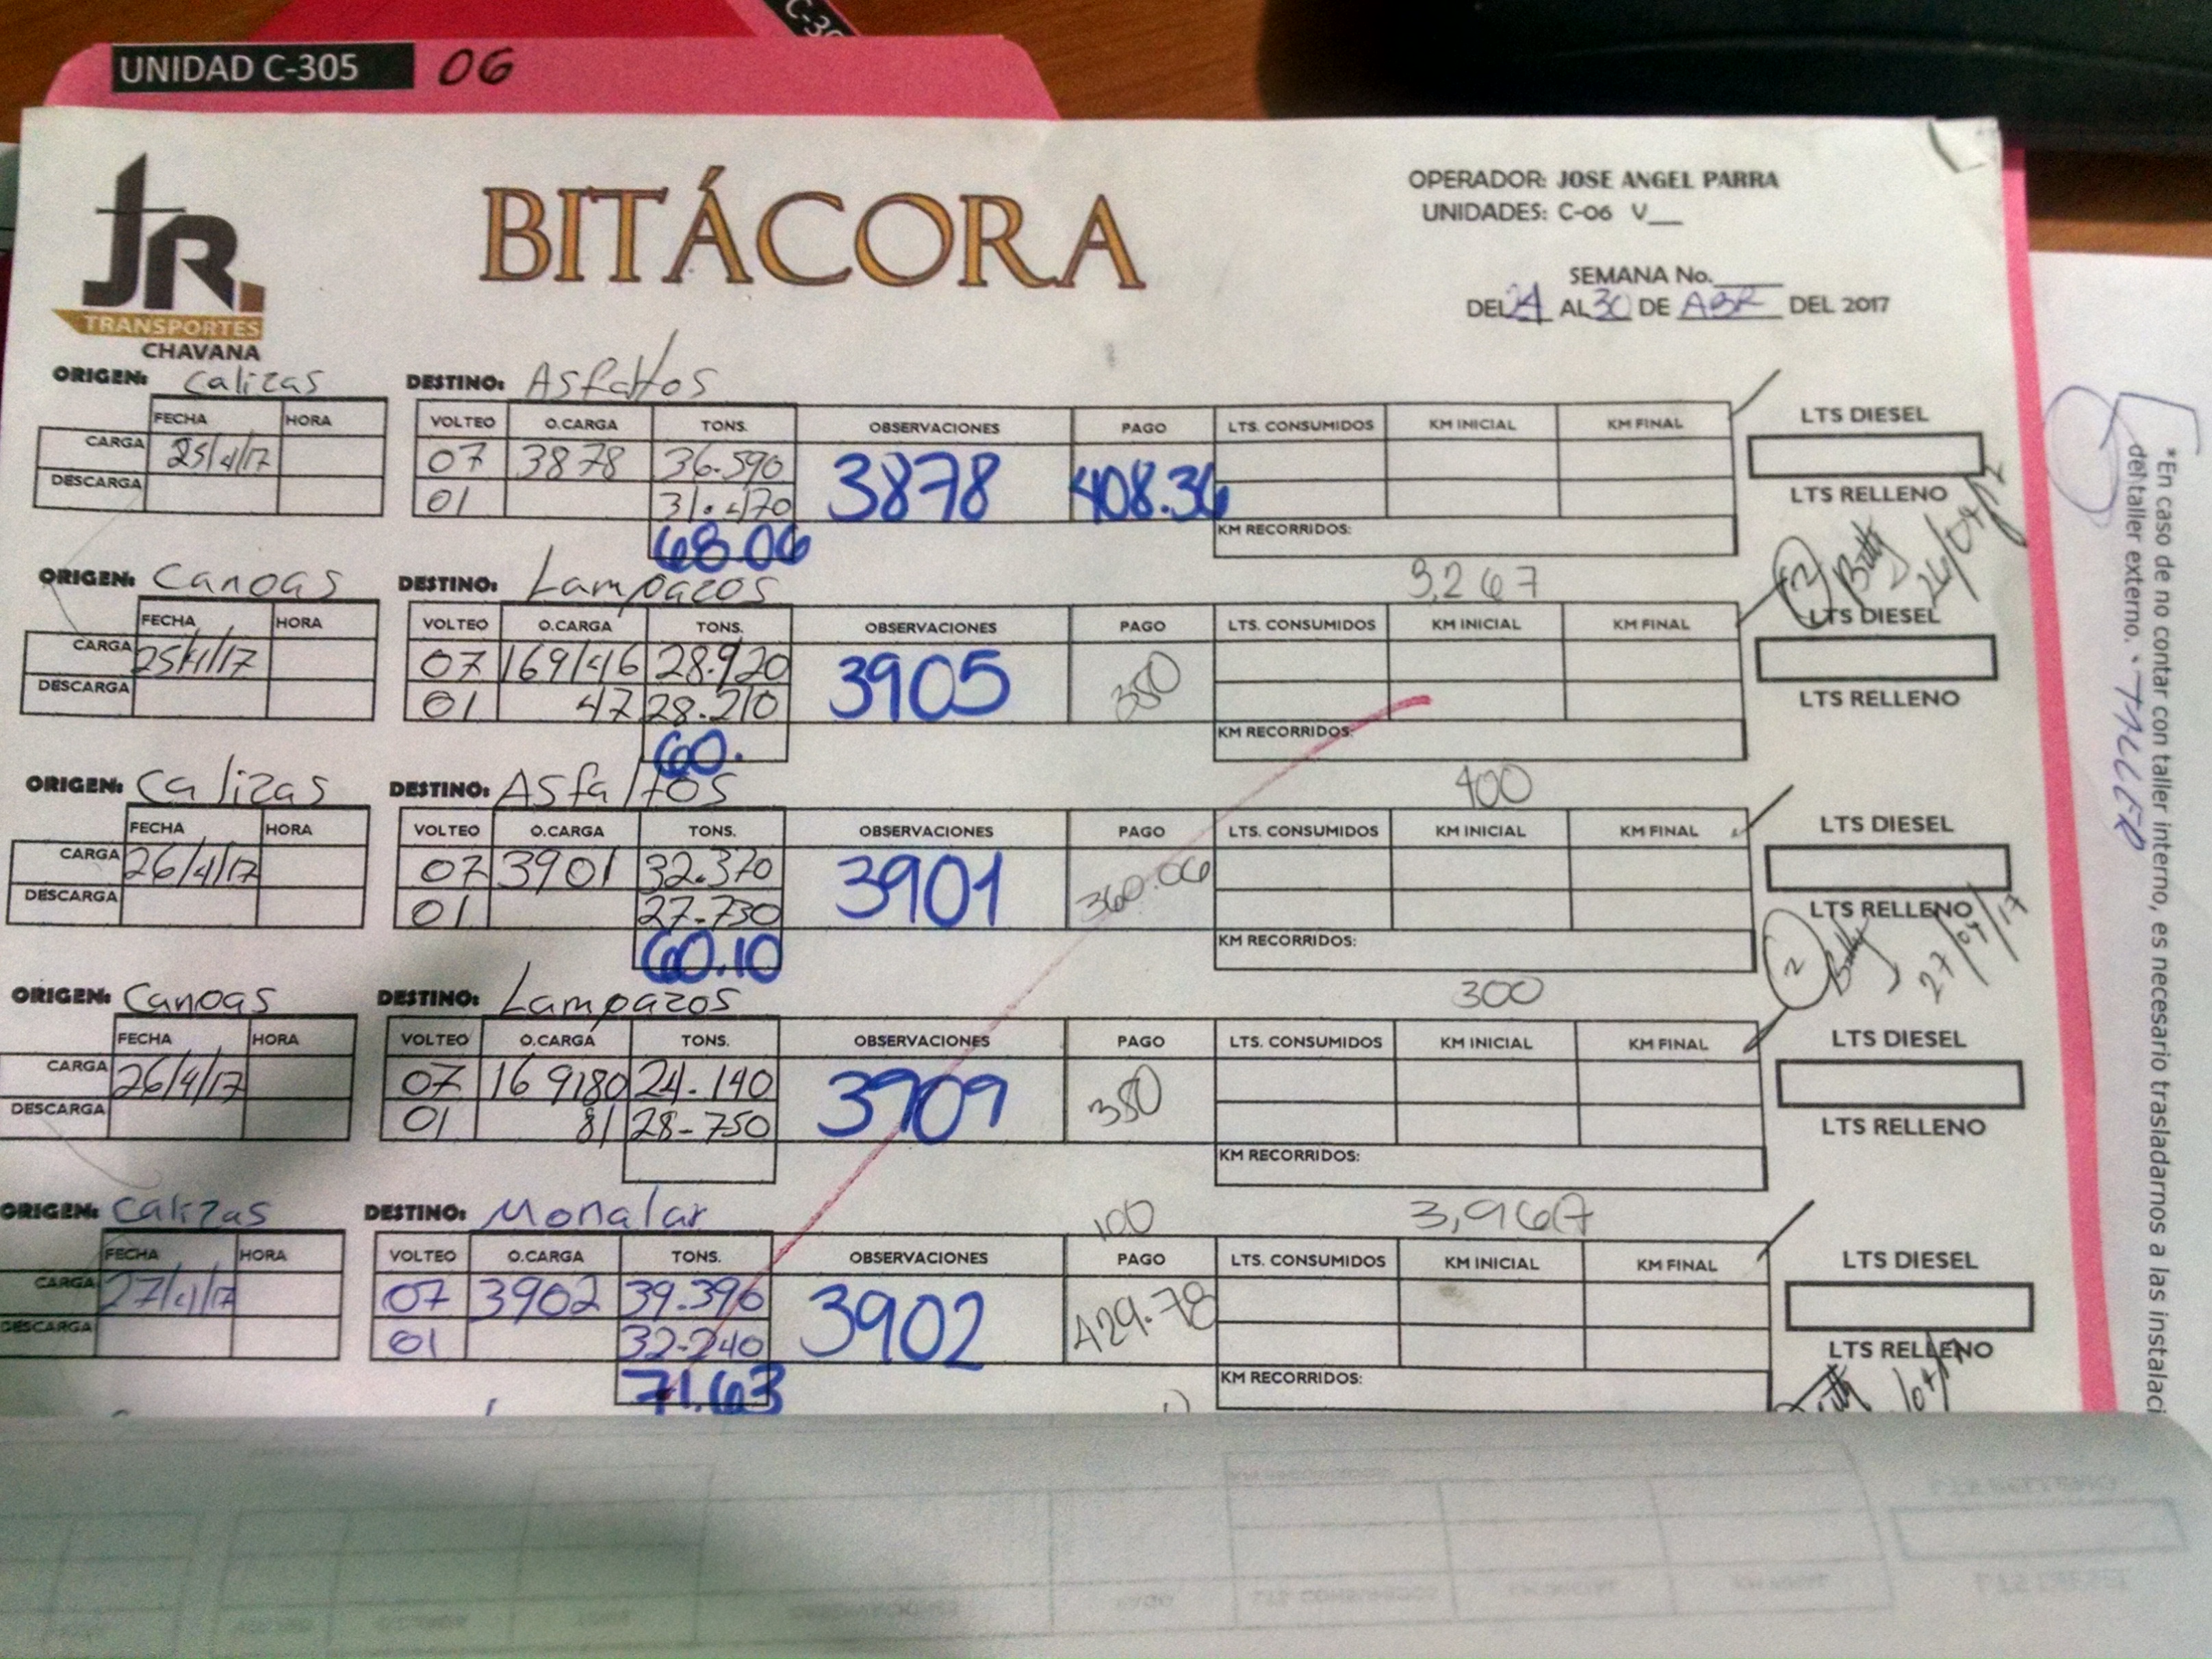 UNIDAD C-305 06
JR.
TRANSPORTES
CHAVANA
BITÁCORA
OPERADOR: JOSE ANGEL PARRA
UNIDADES: C-06 V__
SEMANA No.____
DEL 24 AL 30 DE ABR DEL 2017
ORIGEN: Calizas DESTINO: Asfaltos
FECHA HORA VOLTEO O.CARGA TONS. OBSERVACIONES PAGO LTS. CONSUMIDOS KM INICIAL KM FINAL LTS DIESEL
CARGA 25/4/17 07 3878 36.590 3878 408.36
DESCARGA 01 31.470 LTS RELLENO
68.06 KM RECORRIDOS:
26/04/17
3,267
ORIGEN: Canoas DESTINO: Lampazos
FECHA HORA VOLTEO O.CARGA TONS. OBSERVACIONES PAGO LTS. CONSUMIDOS KM INICIAL KM FINAL LTS DIESEL
CARGA 25/4/17 07 169146 28.920 3905 380
DESCARGA 01 47 28.210 LTS RELLENO
60. KM RECORRIDOS:
400
ORIGEN: Calizas DESTINO: Asfaltos
FECHA HORA VOLTEO O.CARGA TONS. OBSERVACIONES PAGO LTS. CONSUMIDOS KM INICIAL KM FINAL LTS DIESEL
CARGA 26/4/17 07 3901 32.370 3901 360.06
DESCARGA 01 27-730 LTS RELLENO
60.10 KM RECORRIDOS:
2 27/04/17
300
ORIGEN: Canoas DESTINO: Lampazos
FECHA HORA VOLTEO O.CARGA TONS. OBSERVACIONES PAGO LTS. CONSUMIDOS KM INICIAL KM FINAL LTS DIESEL
CARGA 26/4/17 07 169180 24-140 3909 380
DESCARGA 01 81 28-750 LTS RELLENO
KM RECORRIDOS:
100 3,967
ORIGEN: Calizas DESTINO: Monalar
FECHA HORA VOLTEO O.CARGA TONS. OBSERVACIONES PAGO LTS. CONSUMIDOS KM INICIAL KM FINAL LTS DIESEL
CARGA 27/4/17 07 3902 39.390 3902 429.78
DESCARGA 01 32-240 LTS RELLENO
71.63 KM RECORRIDOS:
*En caso de no contar con taller interno, es necesario trasladarnos a las instalaci
del taller externo. TALLER